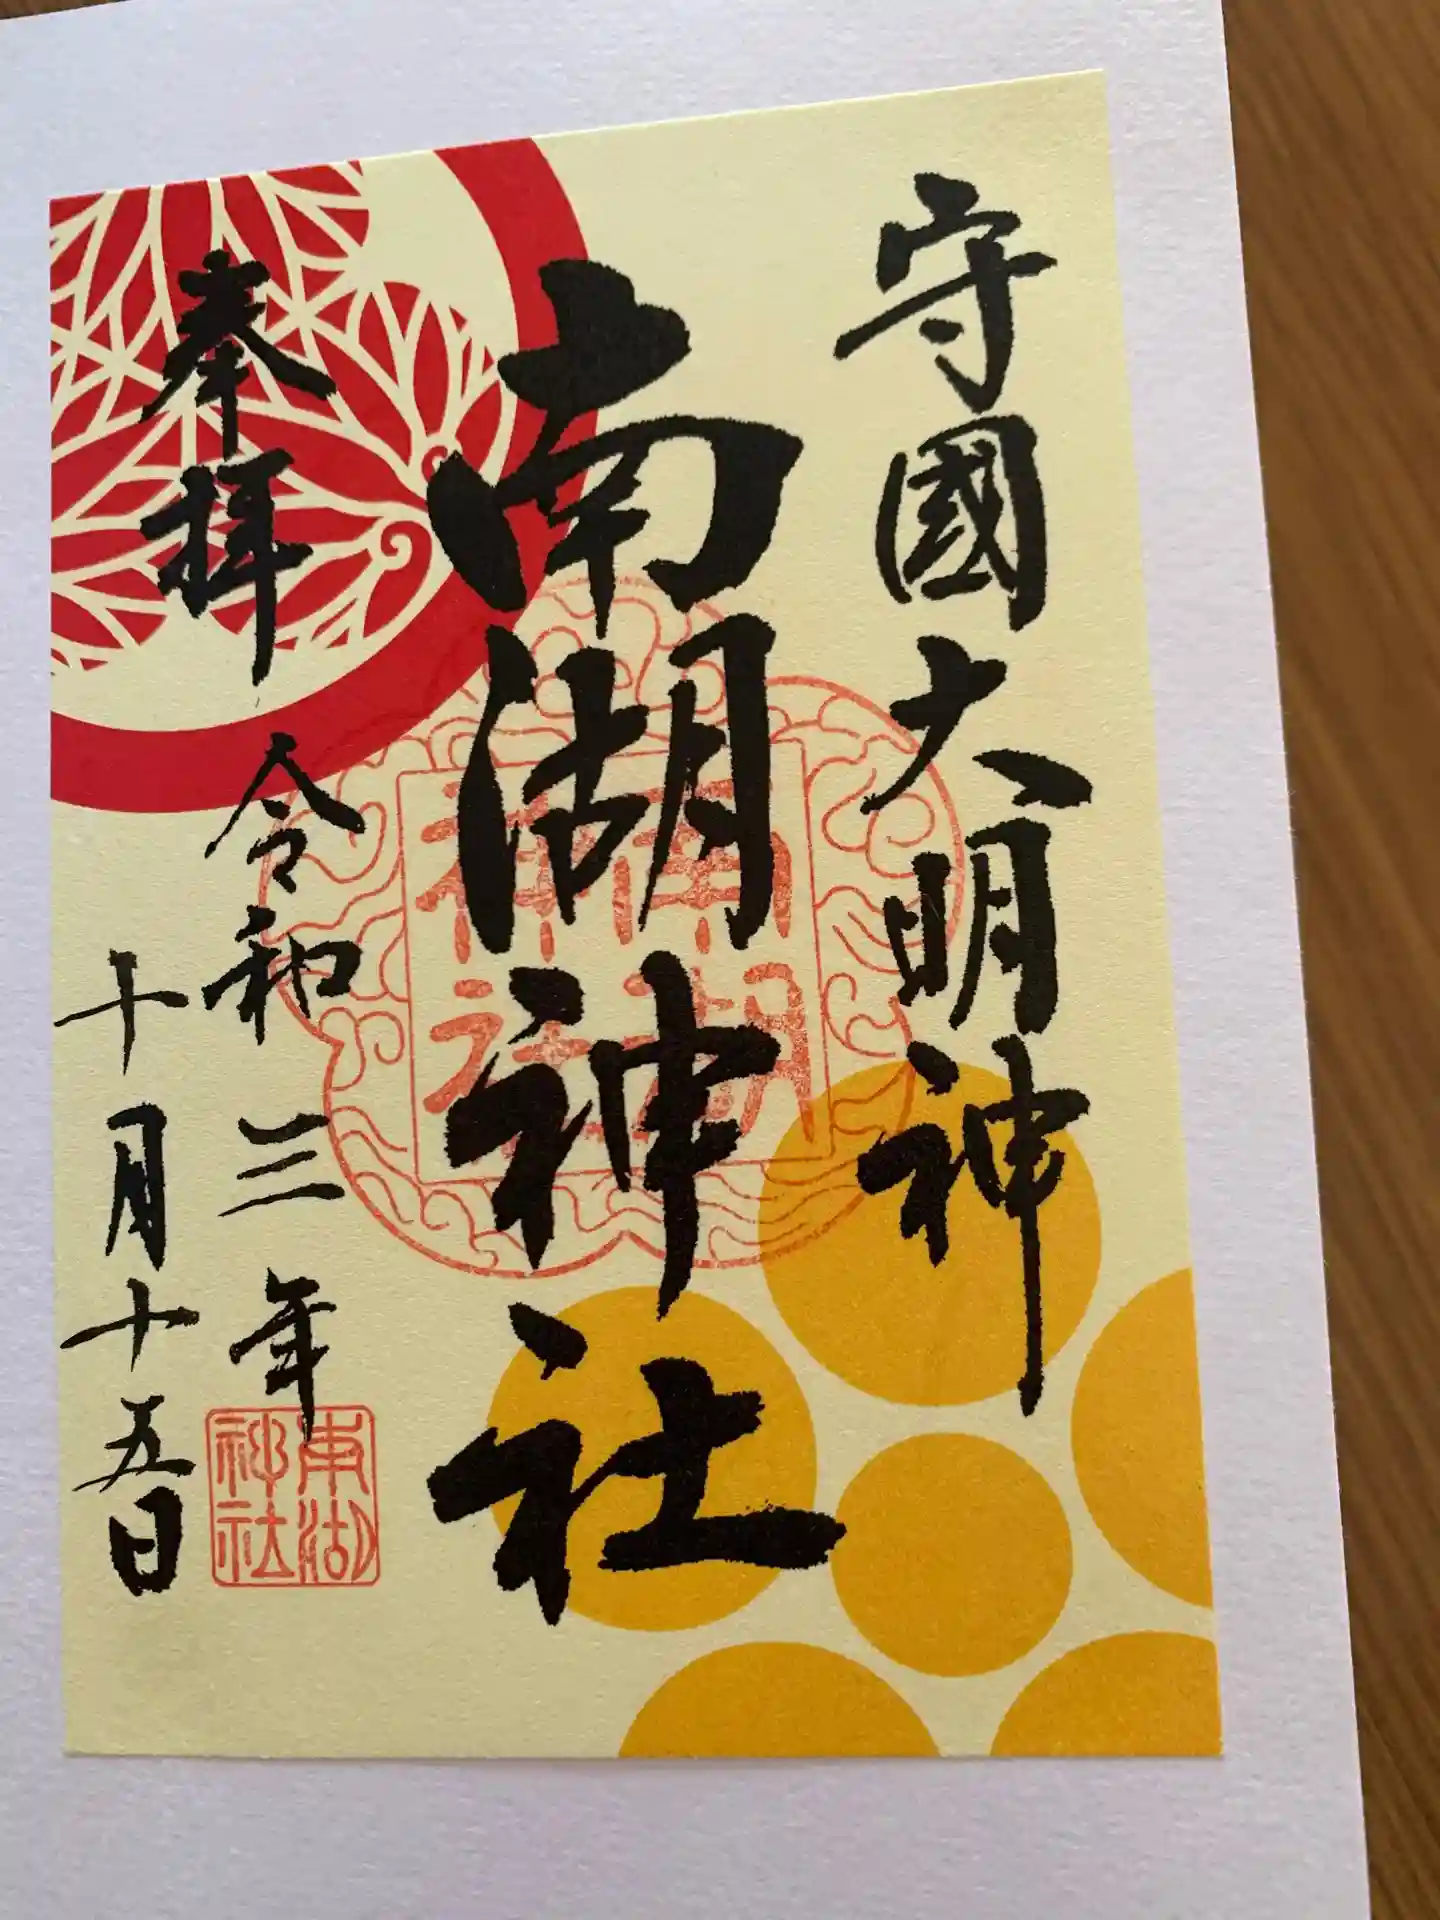 守國大明神
南湖神社
奉拝
令和三年
十月十五日
南湖神社
南湖神社